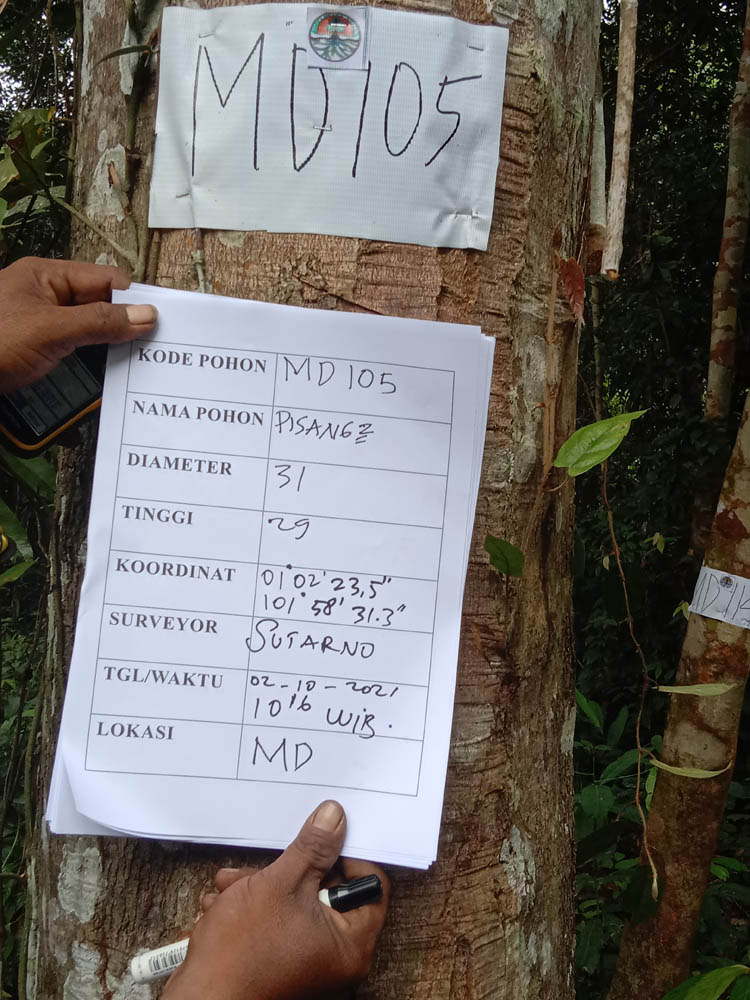 MD 105
KODE POHON MD 105
NAMA POHON PISANG2
DIAMETER 31
TINGGI 29
KOORDINAT 01° 02' 23,5"
101° 58' 31.3"
SURVEYOR SUTARNO
TGL/WAKTU 02-10-2021
10 16 WIB.
LOKASI MD